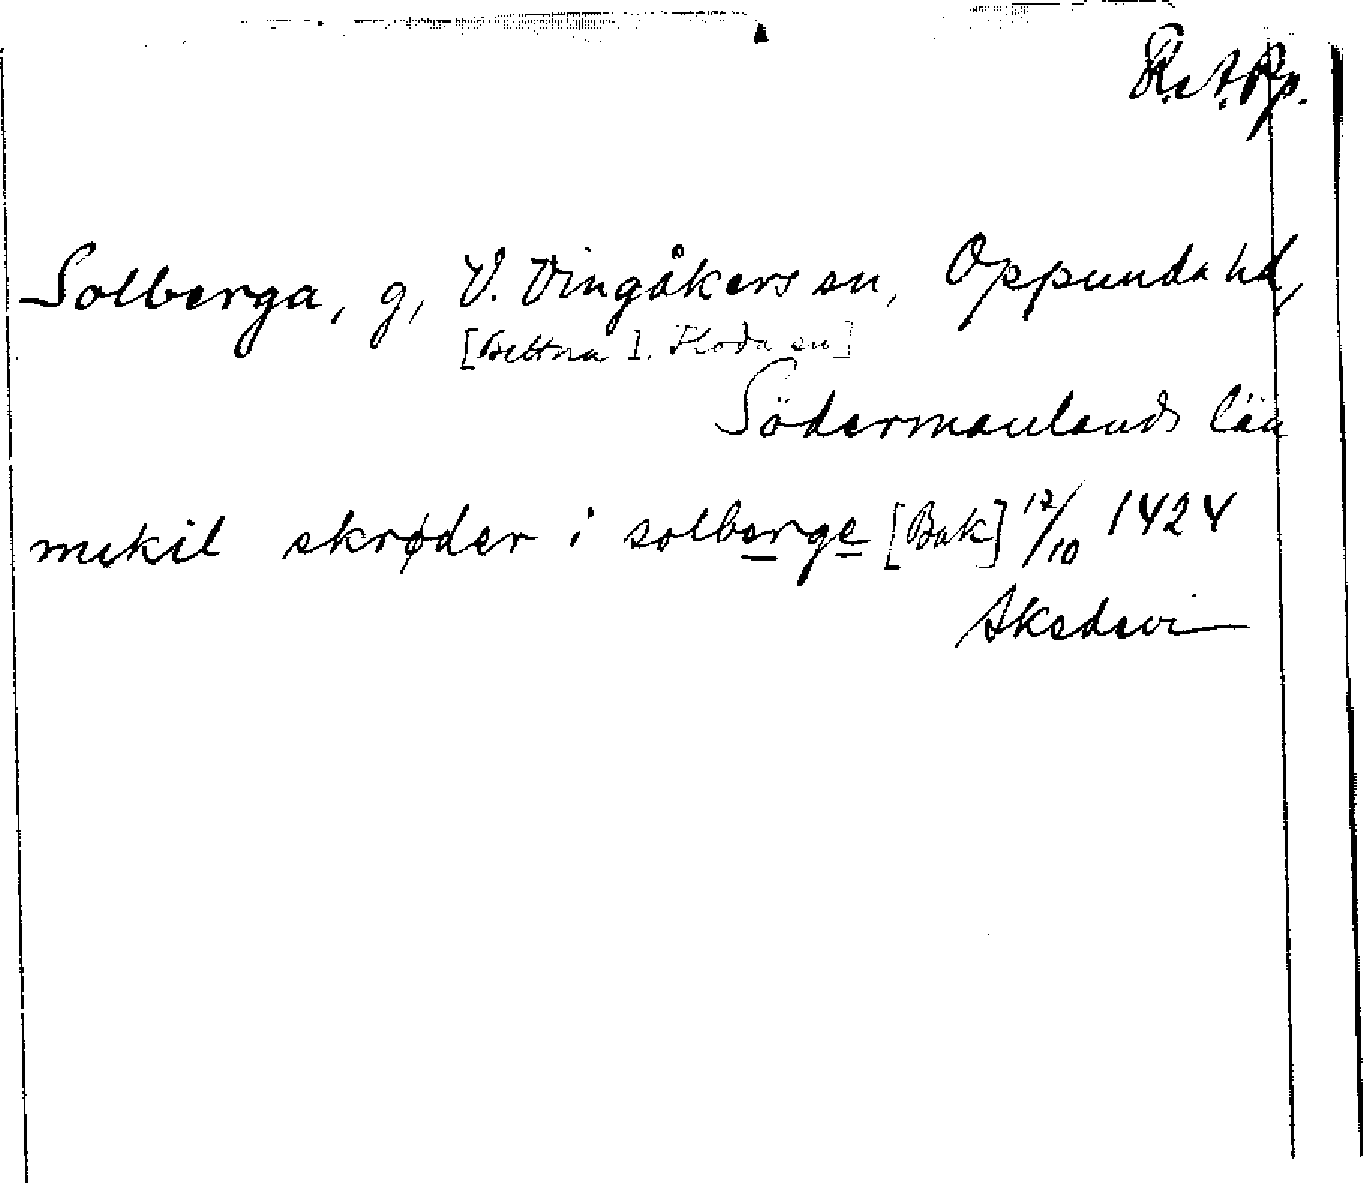 R.A.Pp.
Solberga, g, V. Vingåkers sn, Oppunda hd,
[Bettna l. Floda sn]
Södermanlands län
mekil skrøder i solberge [Bak] 12/10 1424
Akedavi